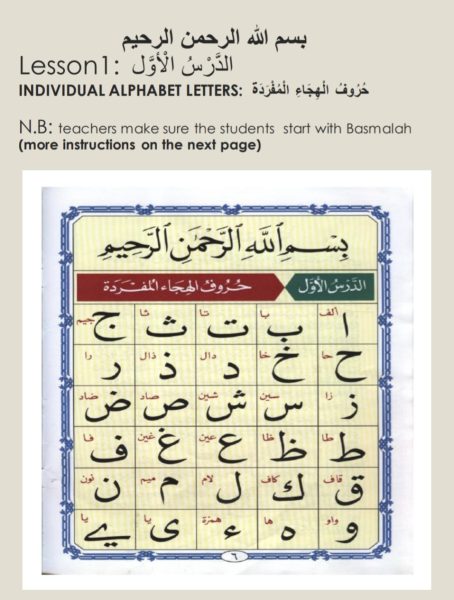 بسم الله الرحمن الرحيم
Lesson1: الدَّرْسُ الْأوَّل
INDIVIDUAL ALPHABET LETTERS: حُرُوفُ الْهِجَاءِ الْمُفْرَدَة
N.B: teachers make sure the students start with Basmalah
(more instructions on the next page)
بِسْمِ اللَّهِ الرَّحْمَٰنِ الرَّحِيمِ
الدَّرْسُ الأَوَّل حُرُوفُ الهِجَاءِ المُفْرَدَة
الف با تا ثا جيم
ا ب ت ث ج
حا خا دال ذال را
ح خ د ذ ر
زا سين شين صاد ضاد
ز س ش ص ض
طا ظا عين غين فا
ط ظ ع غ ف
قاف كاف لام ميم نون
ق ك ل م ن
واو ها همزة يا يا
و ه ء ى ے
٦